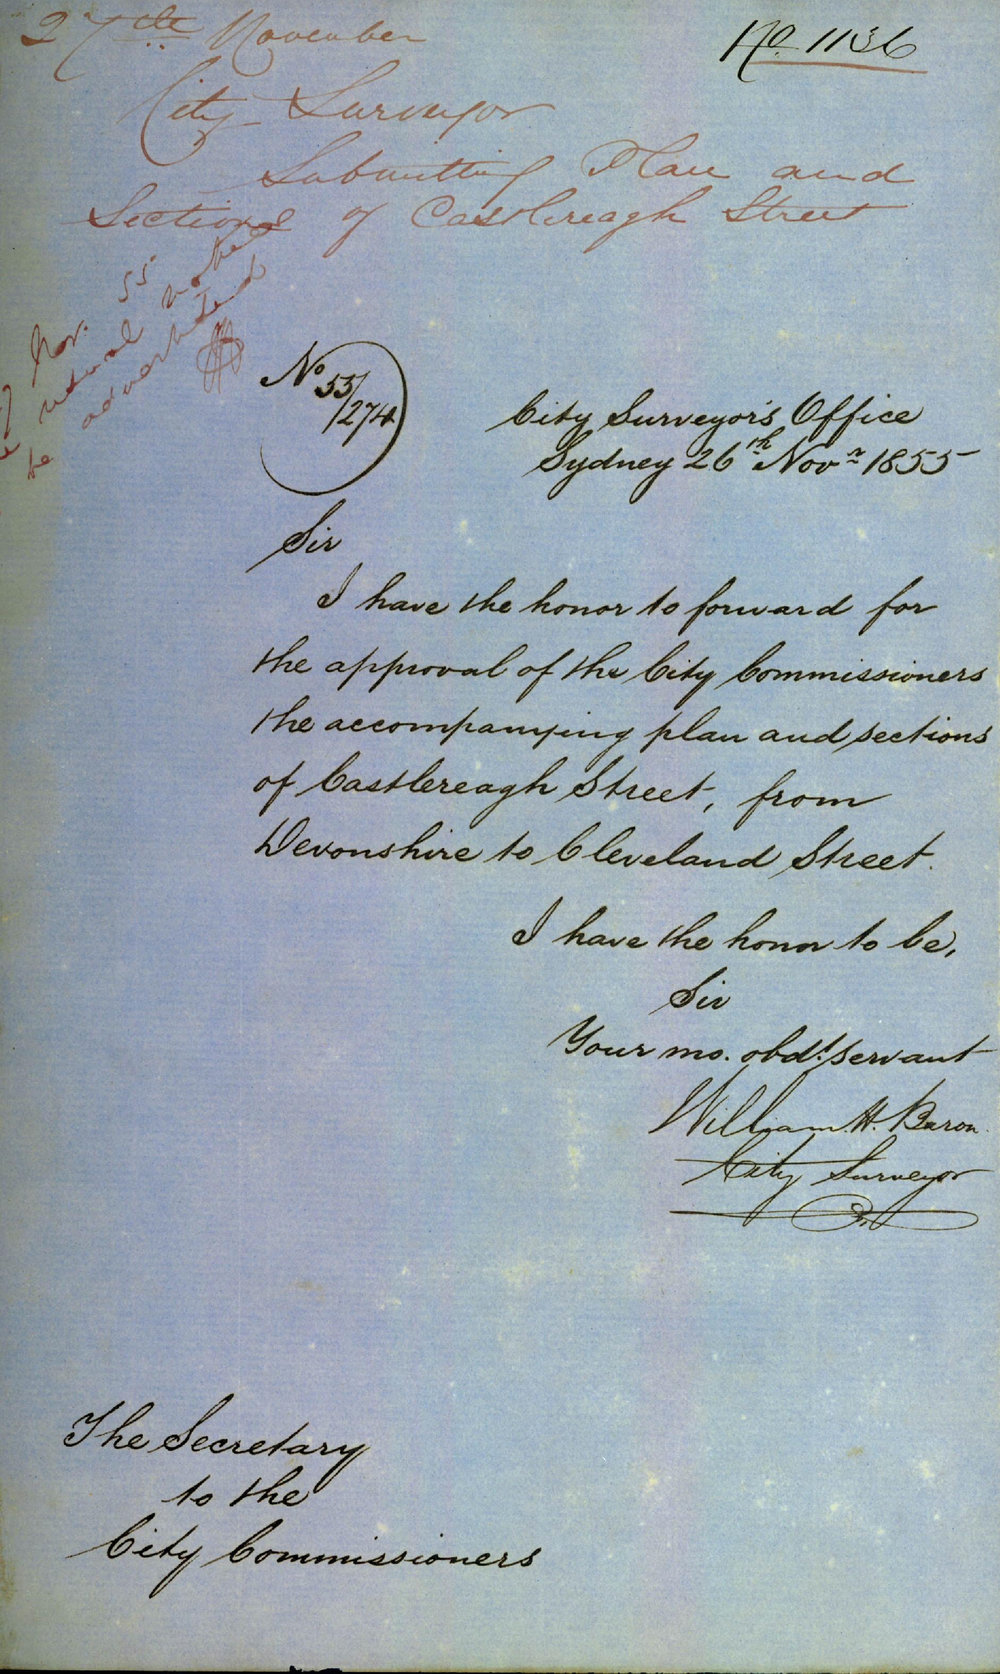 27th November
No. 1136
City Surveyor
Submitting Plan and
Sections of Castlereagh Street
Nov. 55.
usual notice
be advertised
No 55/274
City Surveyor's Office
Sydney 26th Novr 1855
Sir
I have the honor to forward for
the approval of the City Commissioners
the accompanying plan and sections
of Castlereagh Street, from
Devonshire to Cleveland Street.
I have the honor to be,
Sir
Your mo. obdt. servant
William H. Baron
City Surveyor
The Secretary
to the
City Commissioners